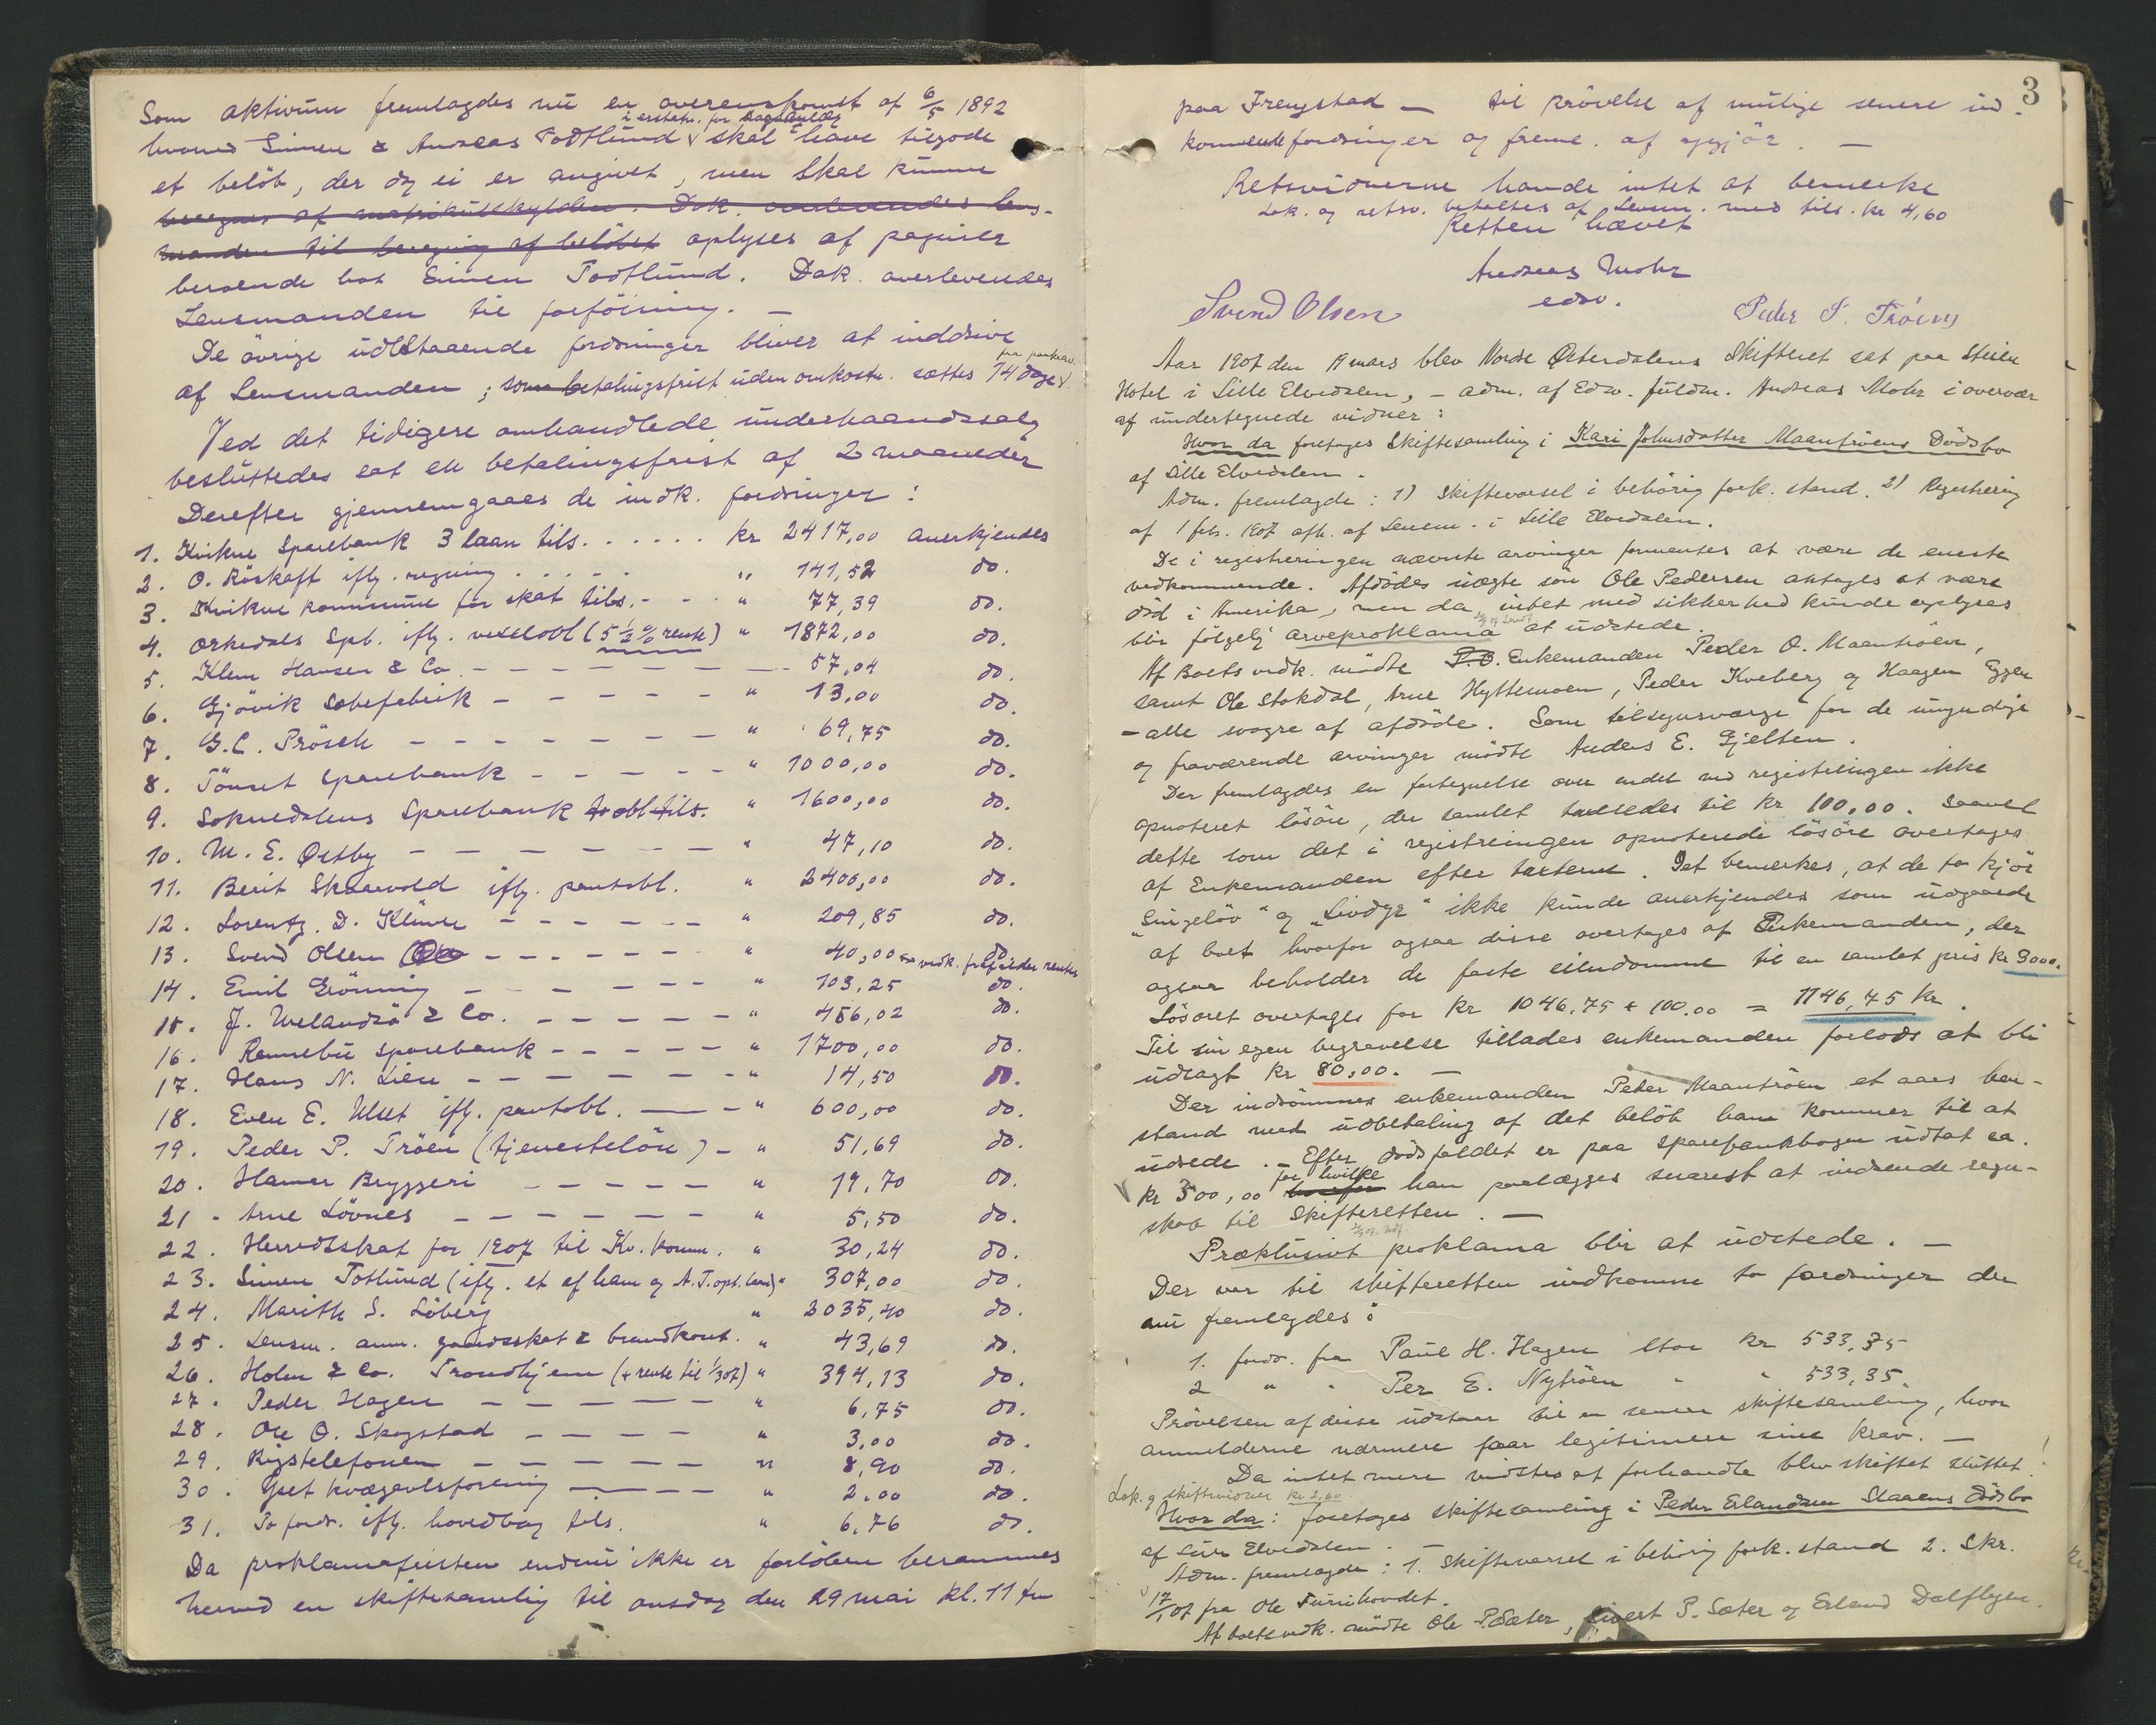 Som aktivum fremlagdes nu en overenskomst af 6/5 1892
i erstatn. for
hvorved Simen & Andreas Todtlund skal have tilgode
et beløb, der dog ei er angivet, men skal kunne
beregnes af matrikulskylden. Dok. overlevendes lens-
manden til beregning af beløbet oplyses af papirer
beroende hos Simen Todtlund. Dok. overlevendes
Lensmanden til forføining. —
De øvrige udestaaende fordringer bliver at inddrive
af Lensmanden; som betalingsfrist uden omkostn. sættes 14 dage
fra paakrav.
Ved det tidigere omhandlede underhaandssalg
besluttedes sat en betalingsfrist af 2 maaneder
Derefter gjennemgaaes de indk. fordringer:
1. Kvikne Sparebank 3 laan tils. . . . . . kr 2417,00 anerkjendes
2. O. Röskaft iflg. regning . . . . . " 141,52 do.
3. Kvikne kommune for skat tils. - - - " 77,39 do.
4. Orkedals Spb. iflg. vexelobl (5 1/2 % rente) " 1872,00 do.
5. Klem Hansen & Co - - - - - - - - 57,04 do.
6. Gjövik Sæbefabrik - - - - - " 13,00 do.
7. G.C. Prösch - - - - - - - " 69,75 do.
8. Tönset Sparebank - - - - - " 1000,00 do.
9. Soknedalens Sparebank to obl tils. " 1600,00 do.
10. M. E. Østby - - - - - - - " 47,10 do.
11. Berit Skaarvold iflg. pantobl. " 2400,00 do.
12. Lorentz D. Klüwer - - - - - - " 209,85 do.
13. Svend Olsen - - - - - - " 40,00 do.
vedk. frafalder renter
14. Emil Grönning - - - - - - - " 103,25 do.
15. J. Welandsö & Co. - - - - - - " 456,02 do.
16. Rennebu sparebank - - - - - " 1700,00 do.
17. Hans N. Lien - - - - - - - " 14,50 do.
18. Even E. Ulset iflg. pantobl. - - " 600,00 do.
19. Peder P. Tröen (tjenestelön) - " 51,69 do.
20. Hamar Bryggeri - - - - - " 19,70 do.
21. Arne Lövnes - - - - - - - " 5,50 do.
22. Herredsskat for 1907 til Kv. komm. " 30,24 do.
23. Simen Totlund (iflg. et af ham og A.T. opt. laan) " 307,00 do.
24. Marith S. Löberg " 2035,40 do.
25. Lensm. anm. gaardsskat & brandkont. " 43,69 do.
26. Holm & Co. Trondhjem (+ rente til 1/3 07) " 394,13 do.
27. Peder Hagen - - - - - - " 6,75 do.
28. Ole O. Skogstad - - - - " 3,00 do.
29. Rigstelefonen - - - - - - " 8,90 do.
30. Yset kvægavlsforening - - - " 2,00 do.
31. To fordr. iflg. hovedbog tils. " 6,76 do.
Da proklamafristen endnu ikke er forlöben berammes
herved en skiftesamling til onsdag den 29 mai kl. 11 fm
3
paa Frengstad — til prövelse af mulige senere ind-
kommende fordringer og freme. af opgjör. —
Retsvidnerne havde intet at bemerke
Lok. og retsv. betaltes af Lensm. med tils. kr 4,60
Retten hævet
Andreas Mohr
edsv.
Svend Olsen Peder P. Tröen
Aar 1907 den 19 mars blev Nordre Østerdalens Skifteret sat paa Steien
Hotel i Lille Elvedalen, - adm. af Edsv. fuldm. Andreas Mohr i overvær
af undertegnede vidner:
Hvor da foretages Skiftesamling i Kari Johnsdatter Maantröens Dödsbo
af Lille Elvedalen.
Adm. fremlagde: 1) Skiftevarsel i behörig fork. stand. 2) Registrering
af 1 feb. 1907 afh. af Lensm. i Lille Elvedalen.
De i registreringen nævnte arvinger formentes at være de eneste
vedkommende. Afdödes uægte sön Ole Pedersen antages at være
död i Amerika, men da intet med sikkerhed kunde oplyses
blir fölgelig arveproklama at udstede.
Af Boets vedk. mödte P.O. Enkemanden Peder O. Maantröen,
samt Ole Stokdal, Arne Hyttemoen, Peder Kveberg og Haagen Eggen
- alle svogre af afdöde. Som tilsynsværge for de umyndige
og fraværende arvinger mödte Anders E. Gjelten.
Der fremlagdes en fortegnelse over endel ved registreringen ikke
opnoteret lösöre, der samlet taxeredes til kr 100,00. Saavel
dette som det i registreringen opnoterede lösöre overtages
af Enkemanden efter taxterne. Det bemerkes, at de to kjör
"Singelöv" og "Livdyr" ikke kunde anerkjendes som udgaaede
af boet hvorfor ogsaa disse overtages af Enkemanden, der
ogsaa beholder de faste eiendomme til en samlet pris kr 3000.
Lösöret overtages for kr 1046,75 + 100,00 = 1146,75 kr.
Til sin egen begravelse tillades enkemanden forlods at bli
udlagt kr 80,00. —
Der indrömmes enkemanden Peder Maantröen et aars hen-
stand med udbetaling af det belöb han kommer til at
udrede. - Efter dödsfaldet er paa sparebankbogen udtat ca.
kr 300,00 hvorfor for hvilke han paalægges snarest at indsende regn-
skab til Skifteretten. —
Præklusivt proklama blir at udstede. —
Der var til skifteretten indkomne to fordringer der
nu fremlagdes:
1. fordr. fra Paul H. Hagen stor kr 533,35
2 " " Per E. Nytröen " " 533,35.
Prövelsen af disse udstaar til en senere skiftesamling, hvor
anmelderne nærmere faar legitimere sine krav. —
Da intet mere vidstes at forhandle blev skiftet sluttet!
Lok. og skiftevidner kr 2,60.
Hvor da: foretages skiftesamling i Peder Erlandsen Staaens dödsbo
af Lille Elvedalen. —
Adm. fremlagde: 1. Skiftevarsel i behörig fork. stand 2. Skr.
17/1 07 fra Ole Furuhovdet.
Af boets vedk. mödte Ole P. Sæter, Sivert P. Sæter og Erland Dalflyen.